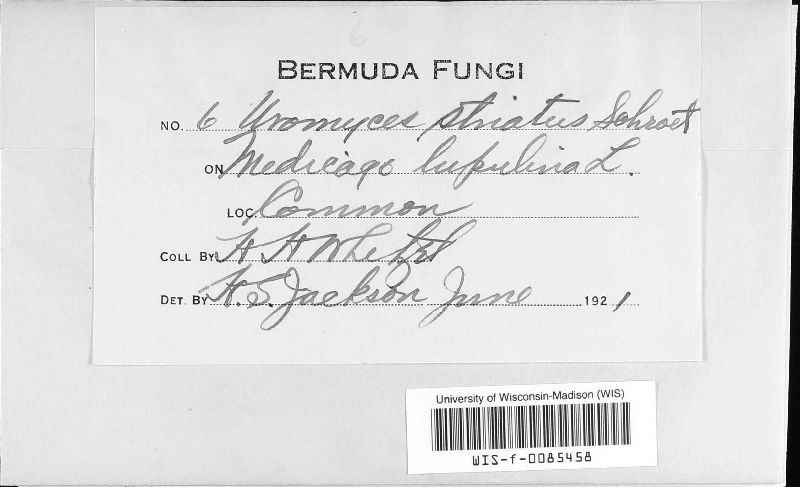 BERMUDA FUNGI
NO. 6 Uromyces striatus Schroet
ON Medicago lupulina L.
LOC. Common
COLL BY H H Whetzel
DET. BY H. S. Jackson June 1921
University of Wisconsin-Madison (WIS)
WIS-f-0085458